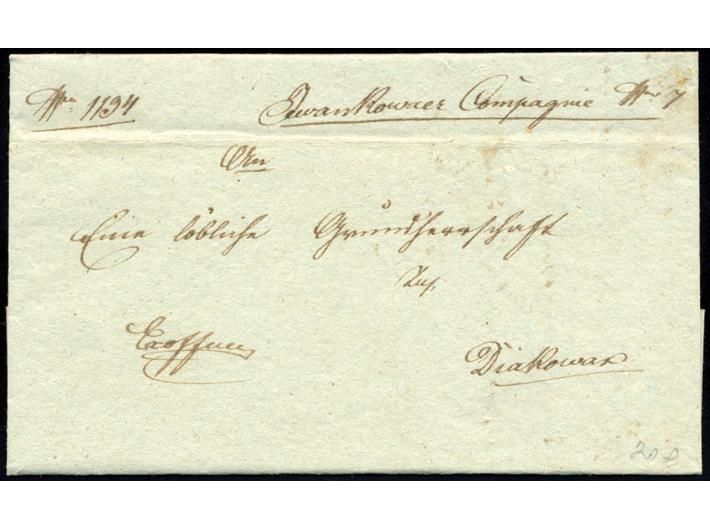 Nro. 1194 Iwankowaer Compagnie Nro 7
An
Eine löbliche Grundherrschaft
zu
Diakowar